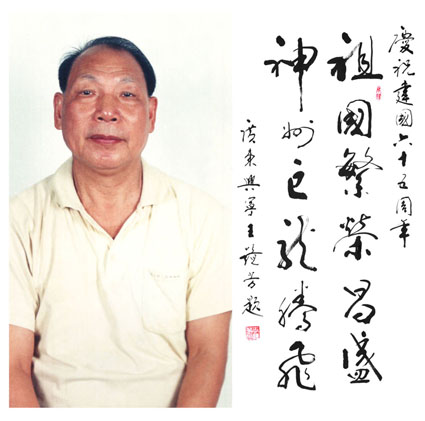 慶祝建國六十五周年
祖國繁榮昌盛
神州巨龍騰飛
廣東興寧王芳題